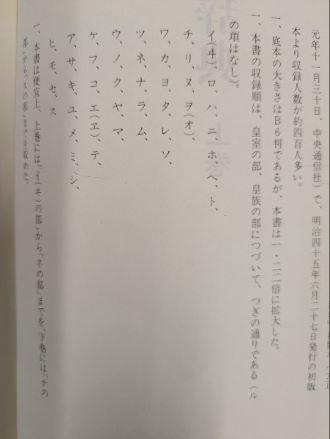 元年十一月三十日、中央通信社）で、明治四十五年六月二十七日発行の初版
本より収録人数が約四百人多い。
一、底本の大きさはＢ６判であるが、本書は一・二二倍に拡大した。
一、本書の収録順は、皇室の部、皇族の部につづいて、つぎの通りである（ル
の項はなし）。
イ（ヰ）、ロ、ハ、ニ、ホ、ヘ、ト、
チ、リ、ヌ、ヲ（オ）、
ワ、カ、ヨ、タ、レ、ソ、
ツ、ネ、ナ、ラ、ム、
ウ、ノ、ク、ヤ、マ、
ケ、フ、コ、エ（ヱ）、テ、
ア、サ、キ、ユ、メ、ミ、シ、
ヒ、モ、セ、ス
一、本書は便宜上、上巻には、「イ（ヰ）の部」から「ネの部」までを、下巻には「ナの
部」から「スの部」までを収めた。